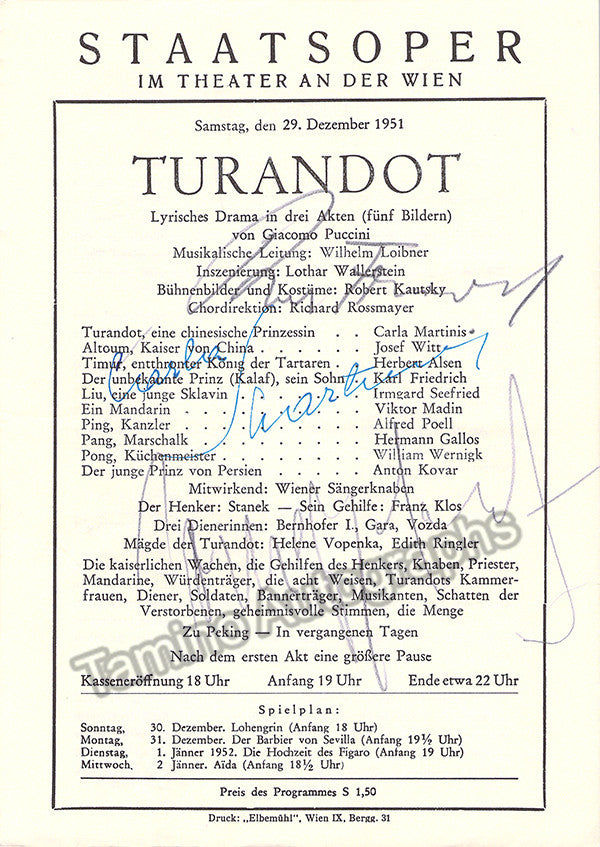 STAATSOPER
IM THEATER AN DER WIEN
Samstag, den 29. Dezember 1951
TURANDOT
Lyrisches Drama in drei Akten (fünf Bildern)
von Giacomo Puccini
Musikalische Leitung: Wilhelm Loibner
Inszenierung: Lothar Wallerstein
Bühnenbilder und Kostüme: Robert Kautsky
Chordirektion: Richard Rossmayer
Turandot, eine chinesische Prinzessin . . Carla Martinis
Altoum, Kaiser von China . . . . . . Josef Witt
Timur, entthronter König der Tartaren . . Herbert Alsen
Der unbekannte Prinz (Kalaf), sein Sohn . Karl Friedrich
Liu, eine junge Sklavin . . . . . . Irmgard Seefried
Ein Mandarin . . . . . . . . . Viktor Madin
Ping, Kanzler . . . . . . . . . Alfred Poell
Pang, Marschalk . . . . . . . . Hermann Gallos
Pong, Küchenmeister . . . . . . . William Wernigk
Der junge Prinz von Persien . . . . . Anton Kovar
Carla Martinis
Mitwirkend: Wiener Sängerknaben
Der Henker: Stanek — Sein Gehilfe: Franz Klos
Drei Dienerinnen: Bernhofer I., Gara, Vozda
Mägde der Turandot: Helene Vopenka, Edith Ringler
Die kaiserlichen Wachen, die Gehilfen des Henkers, Knaben, Priester,
Mandarine, Würdenträger, die acht Weisen, Turandots Kammer-
frauen, Diener, Soldaten, Bannerträger, Musikanten, Schatten der
Verstorbenen, geheimnisvolle Stimmen, die Menge
Zu Peking — In vergangenen Tagen
Nach dem ersten Akt eine größere Pause
Kasseneröffnung 18 Uhr Anfang 19 Uhr Ende etwa 22 Uhr
Spielplan:
Sonntag, 30. Dezember. Lohengrin (Anfang 18 Uhr)
Montag, 31. Dezember. Der Barbier von Sevilla (Anfang 19½ Uhr)
Dienstag, 1. Jänner 1952. Die Hochzeit des Figaro (Anfang 19 Uhr)
Mittwoch. 2 Jänner. Aïda (Anfang 18½ Uhr)
Preis des Programmes S 1,50
Druck: „Elbemühl", Wien IX, Bergg. 31
Tamino Autographs